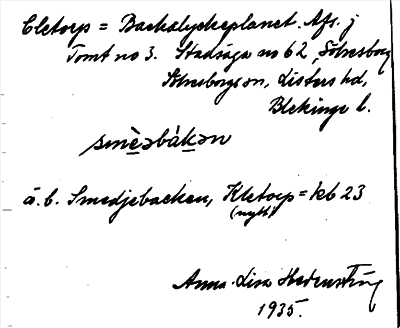 Cletorp = Backalyckeplanet. Afs. j
Tomt no 3. Stadsäga no 62, Sölvesborg
Sölvesborgs sn, Listers hd,
Blekinge l.
smèəbákən
ä. b. Smedjebacken, Kletorp = kb 23
(nytt)
Anna-Lisa
1935.